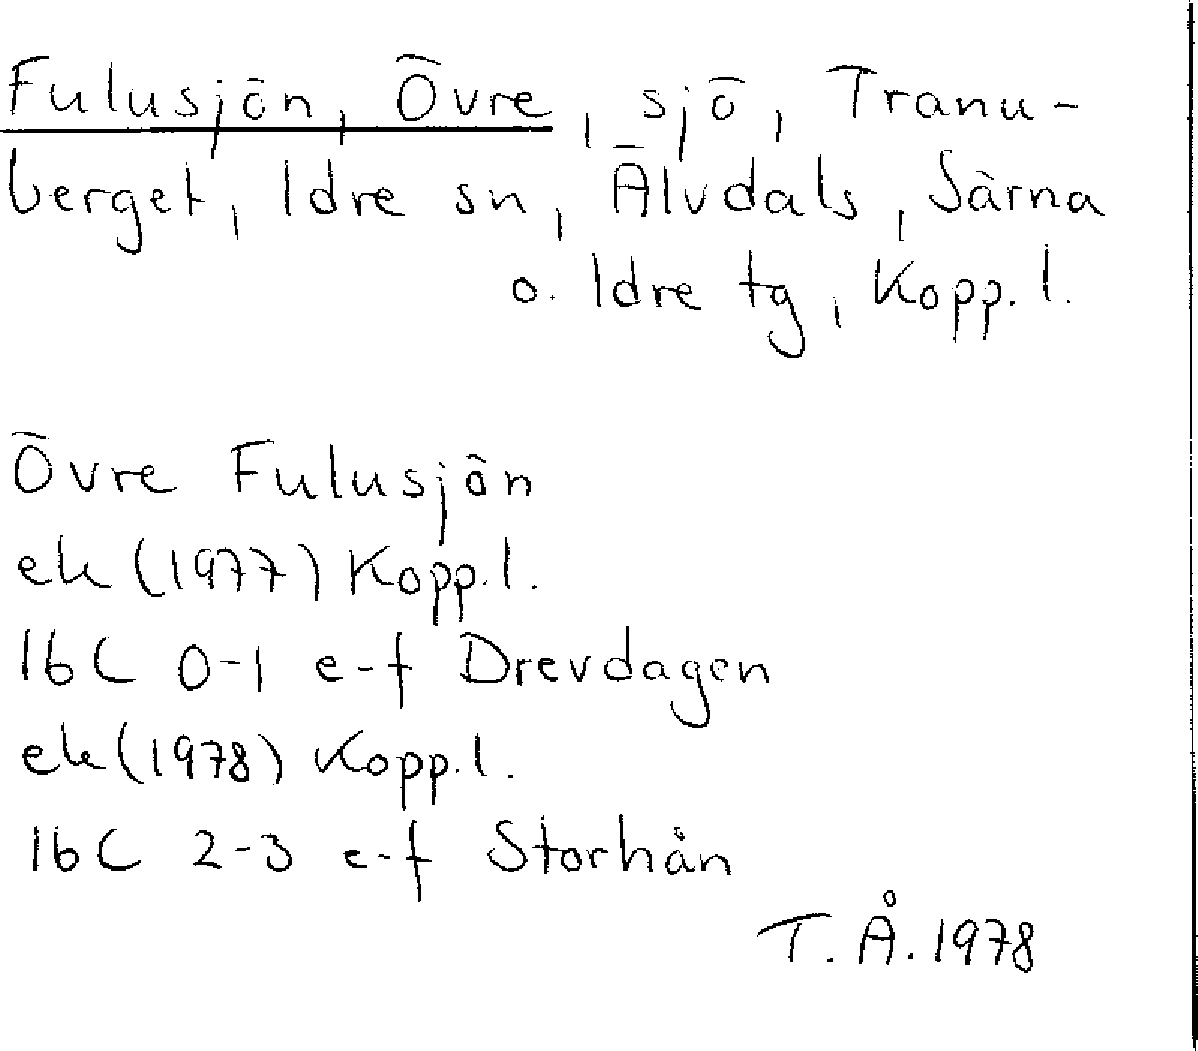 Fulusjön, Övre, sjö, Tranu-
berget, Idre sn, Älvdals, Särna
o. Idre tg, Kopp. l.
Övre Fulusjön
ek (1977) Kopp. l.
16C 0-1 e-f Drevdagen
ek (1978) Kopp. l.
16C 2-3 e-f Storhån
T. Å. 1978